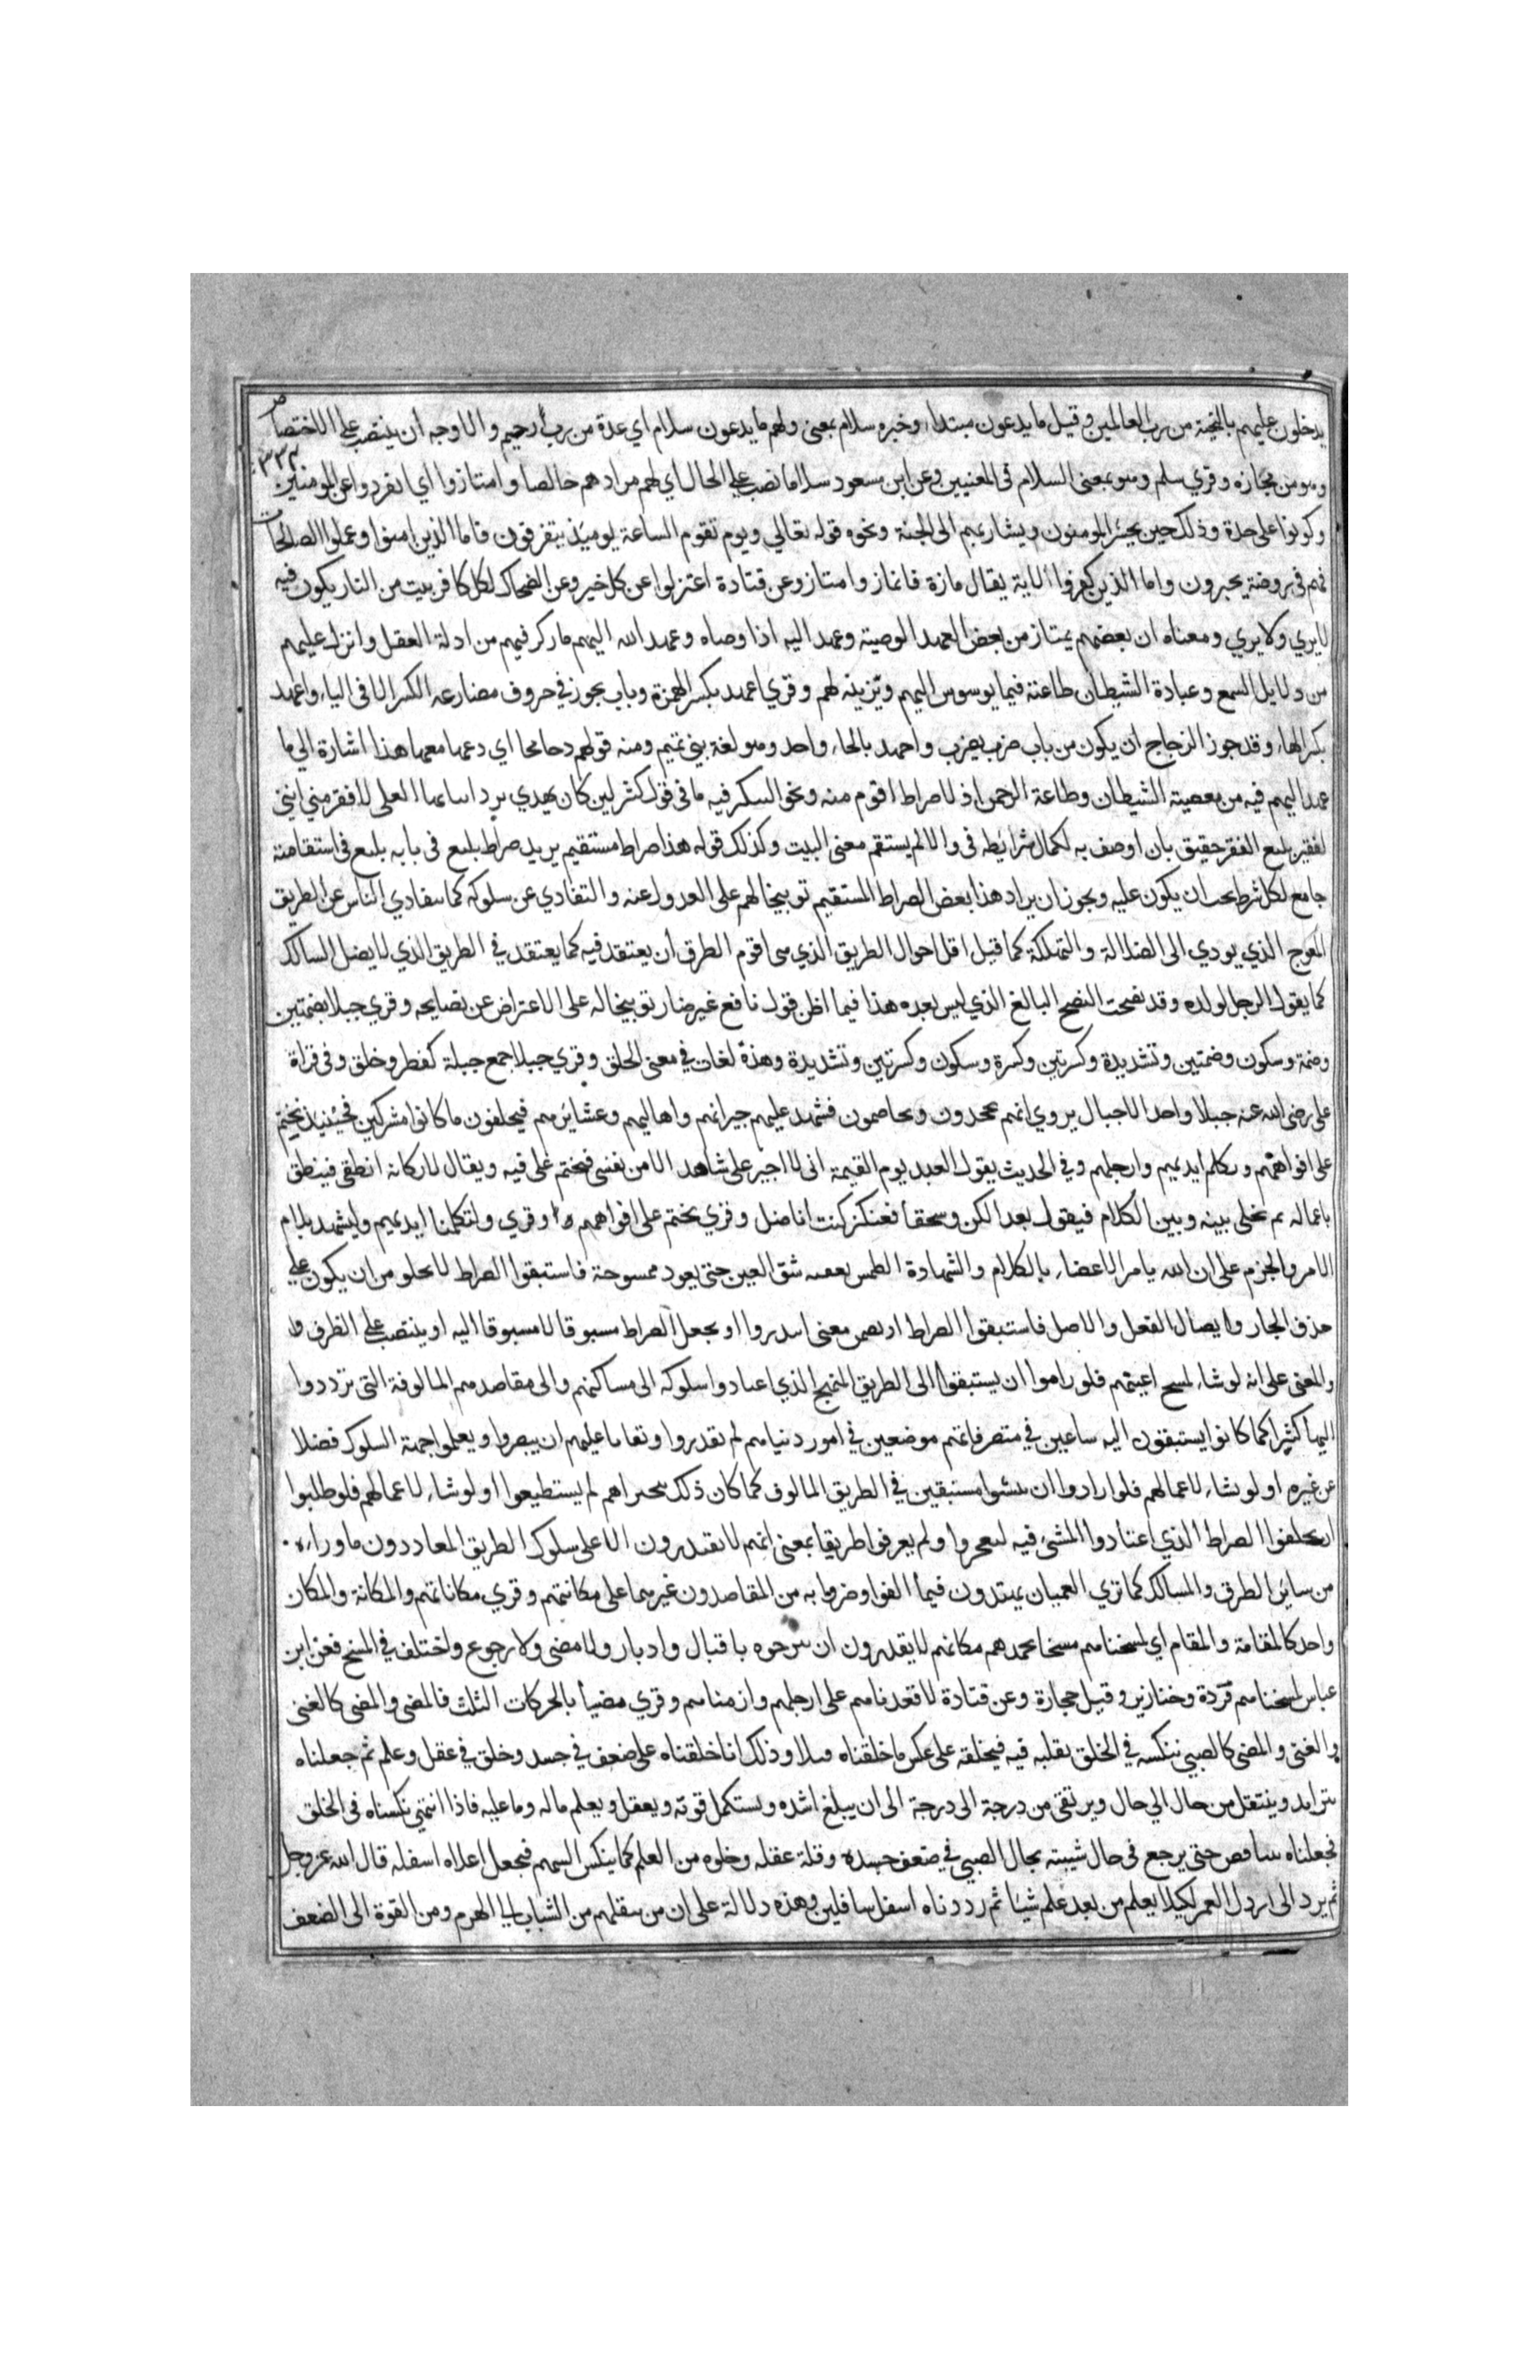 يدخلون عليهم بالتحية من رب العالمين وقيل ما يدعون مبتداء وخبره سلام بمعنى ولهم ما يدعون سلام اي عدة من رب رحيم والاوجه ان ينتصب على الاختصاص
وهو من مجازه وقري سلم وهو بمعنى السلام في المعنيين وعن ابن مسعود سلاما نصب على الحال اي لهم مرادهم خالصا وامتازوا اي انفردوا عن المومنين
وكونوا على حدة وذلك حين يحشر المومنون ويشار بهم الى الجنة ونحوه قوله تعالي ويوم تقوم الساعة يوميذ يتفرقون فاما الذين امنوا وعملوا الصالحات
فهم في روضة يحبرون واما الذين كفروا الاية يقال مازه فانماز وامتاز وعن قتادة اعتزلوا عن كل خير وعن الضحاك لكل كافر بيت من النار يكون فيه
لا يري ولا يري ومعناه ان بعضهم يمتاز من بعض العهد الوصية وعهد اليه اذا وصاه وعهد الله اليهم ما ركز فيهم من ادلة العقل وانزل عليهم
من دلايل السمع وعبادة الشيطان طاعته فيما يوسوس اليهم ويزينه لهم وقري اعهد بكسر الهمزة وباب يجوز في حروف مضارعه الكسر الا في الياء واعهد
بكسر الهاء وقد جوز الزجاج ان يكون من باب ضرب يضرب واحهد بالحاء واحد وهو لغة بني تميم ومنه قولهم دحا محا اي دعها معها هذا اشارة الي ما
عهد اليهم فيه من معصية الشيطان وطاعة الرحمن اذ لا صراط اقوم منه ونحو التنكير فيه ما في قول كثر لين كان يهدي برد انيابها العلى لافقر مني انني
لفقير بليع الفقر حقيق بان اوصف به لكمال شرايطه في والا لم يستقم معنى البيت وكذلك قوله هذا صراط مستقيم يريد صراط بليع في بابه بليع في استقامته
جامع لكل شرط يجب ان يكون عليه ويجوز ان يراد هذا بعض الصراط المستقيم توبيخا لهم على العدول عنه والتفادي عن سلوكه كما يتفادي الناس عن الطريق
المعوج الذي يودي الى الضلالة والتهلكة كما قيل اقل احوال الطريق الذي هي اقوم الطرق ان يعتقد فيه كما يعتقد في الطريق الذي لا يضل السالك
كما يقول الرجل لولده وقد نصحت النصح البالغ الذي ليس بعده هذا فيما اظن قول نافع غير ضار توبيخا له على الاعتراض عن نصايحه وقري جبلا بضمتين
وضمة وسكون وضمتين وتشديدة وكسرتين وكسرة وسكون وكسرتين وتشديدة وهذه لغات في معنى الخلق وقري جبلا جمع جبلة كفطر وخلق وفي قراة
علي رضى الله عنه جبلا واحد الاجبال يروي انهم يجحدون ويخاصمون فشهد عليهم جيرانهم واهاليهم وعشايرهم فيحلفون ما كانوا مشركين فحينيذ يختم
على افواههم وتكلم ايديهم وارجلهم وفي الحديث يقول العبد يوم القيمة اني لا اجير على شاهد الا من نفسي فيختم على فيه ويقال لاركانه انطقى فينطق
باعماله ثم يخلى بينه وبين الكلام فيقول بعدا لكن وسحقا فعنكن كنت اناضل وقري يختم على افواههم وقري ولتكلمنا ايديهم وليشهد بلام
الامر والجزم على ان الله يامر الاعضاء بالكلام والشهادة الطمس تعفيه شق العين حتى يعود ممسوحة فاستبقوا الصراط لا يخلو من ان يكون على
حذف الجار وايصال الفعل والاصل فاستبقوا الصراط او يضمن معنى ابتدروا او يجعل الصراط مسبوقا لا مسبوقا اليه او ينتصب على الظرف
والمعنى على انه لو شاء لمسح اعينهم فلو راموا ان يستبقوا الى الطريق المنهج الذي اعتادوا سلوكه الى مساكنهم والى مقاصدهم المالوفة التي ترددوا
اليها كثيرا كما كانوا يستبقون اليه ساعين في متصرفاتهم موضعين في امور دنياهم لم يقدروا وتعايا عليهم ان يبصروا ويعلموا جهة السلوك فضلا
عن غيره او لو نشاء لاعماهم فلو ارادوا ان يمشوا مستبقين في الطريق المالوف كما كان ذلك هجيراهم لم يستطيعوا او لو شاء لاعماهم فلو طلبوا
ان يخلفوا الصراط الذي اعتادوا المشي فيه لعجزوا ولم يعرفوا طريقا بمعنى انهم لا يقدرون الا على سلوك الطريق المعتاد دون ما وراءه
من ساير الطرق والمسالك كما تري العميان يهتدون فيما الفوا وضروا به من المقاصد دون غيرها على مكانتهم وقري مكاناتهم والمكانة والمكان
واحد كالمقامة والمقام اي لمسخناهم مسخا يجمدهم مكانهم لا يقدرون ان يبرحوه باقبال وادبار ولا مضى ولا رجوع واختلف في المسخ فعن ابن
عباس لمسخناهم قردة وخنازير وقيل حجارة وعن قتادة لاقعدناهم على ارجلهم وازمناهم وقري مضيا بالحركات الثلث فالمضى والمضى كالعتى
والعتى والمضى كالصبي ننكسه في الخلق نقلبه فيه فيخلقه على عكس ما خلقناه قبلا وذلك انا خلقناه على ضعف في جسد وخلق في عقل وعلم ثم جعلناه
يتزايد وينتقل من حال الي حال ويرتقى من درجة الى درجة الى ان يبلغ اشده ويستكمل قوته ويعقل ويعلم ماله وما عليه فاذا انتهى نكسناه في الخلق
فجعلناه يتناقص حتى يرجع في حال شبيته بحال الصبي في ضعف جسده وقلة عقله وخلوه من العلم كما ينكس السهم فيجعل اعلاه اسفله قال الله عز وجل
ثم يرد الى ارذل العمر لكيلا يعلم من بعد علم شيا ثم رددناه اسفل سافلين وهذه دلالة على ان من ينقلهم من الشباب الى الهرم ومن القوة الى الضعف